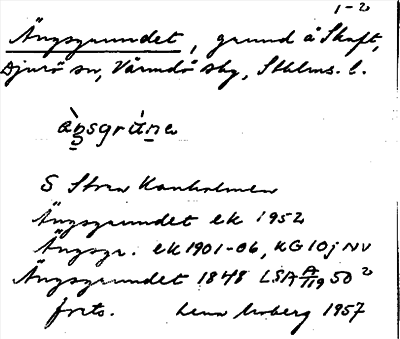 1-2
Ängsgrundet, grund å Skaft,
Djurö sn, Värmdö sby, Sthlms. l.
àŋsgrúna
S Stora Kanholmen
Ängsgrundet ek 1952
Ängsgr. ek 1901-06, KG 10j NV
Ängsgrundet 1848 LSA A/119 50²
forts. Lena Moberg 1957